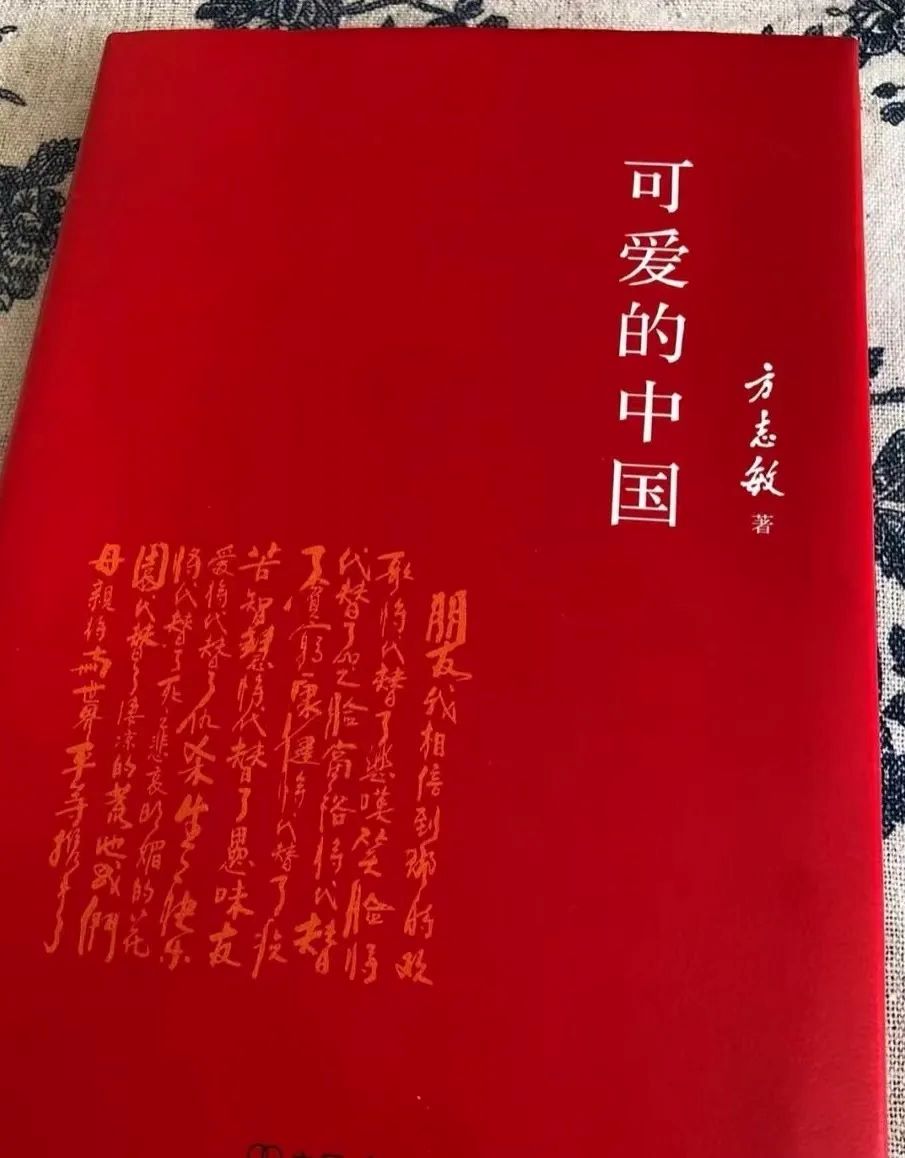 可爱的中国
方志敏 著
朋友我相信到那时欢
歌将代替了悲叹笑脸将
代替了哭脸富裕将代替
了贫穷康健将代替了疾
苦智慧将代替了愚昧友
爱将代替了仇杀生之快乐
将代替了死之悲哀明媚的花
园代替了凄凉的荒地我們
母親将与世界平等携手了